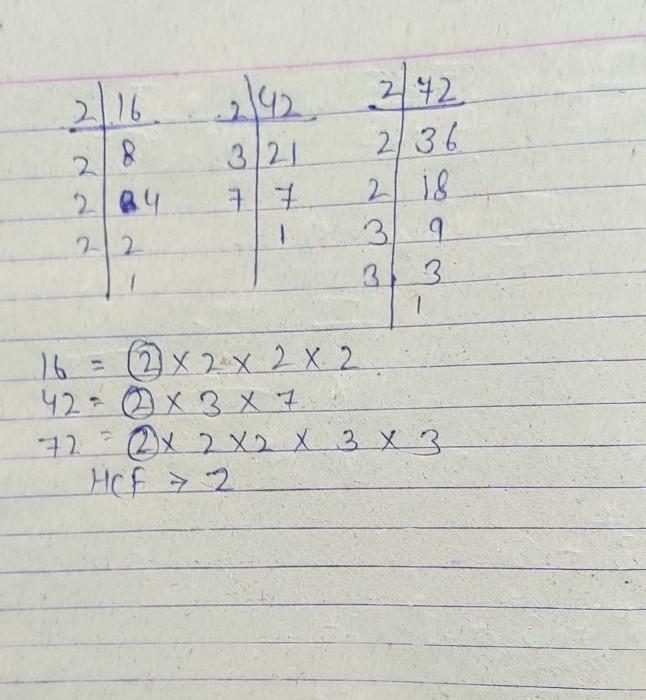 2 16 2 42 2 72
2 8 3 21 2 36
2 4 7 7 2 18
2 2 1 3 9
1 3 3
1
16 = 2 × 2 × 2 × 2
42 = 2 × 3 × 7
72 = 2 × 2 × 2 × 3 × 3
HCF → 2